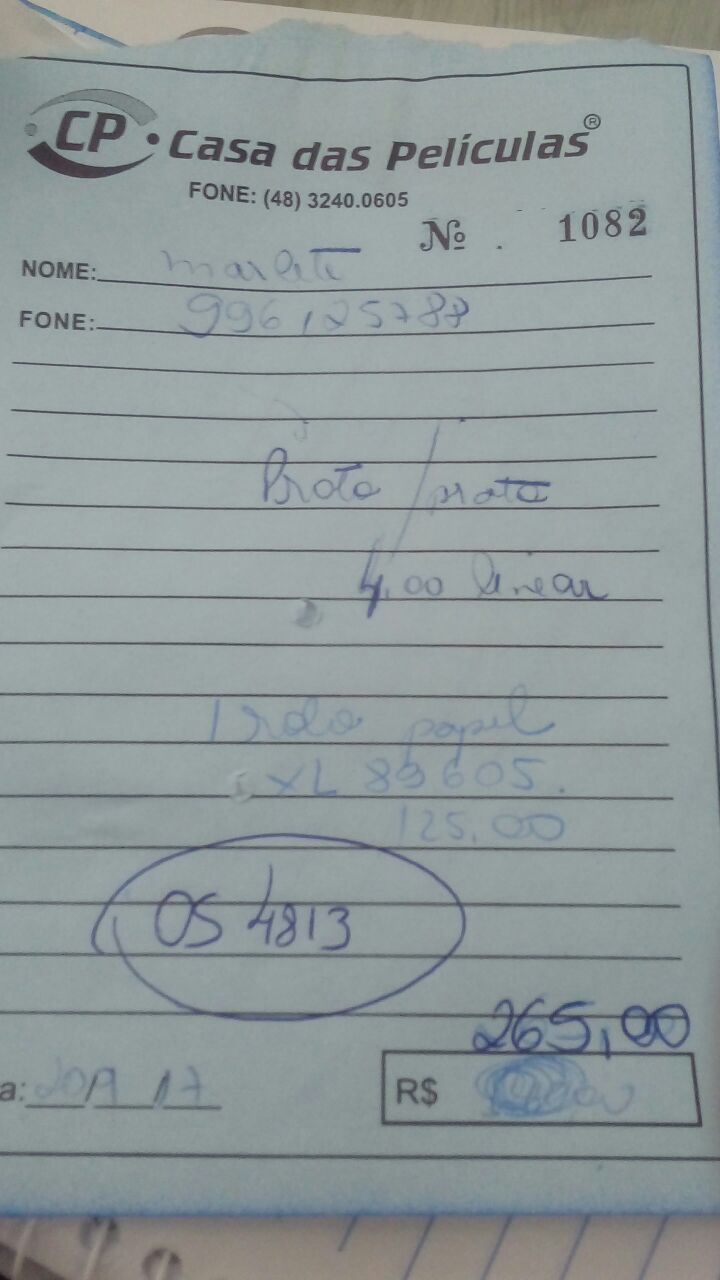 CP • Casa das Películas®
FONE: (48) 3240.0605
Nº . 1082
NOME: marlete
FONE: 996125788
Prata / prata
4,00 linear
1 rolo papel
XL 89605.
125,00
OS 4813
265,00
a: 20/9/17
R$